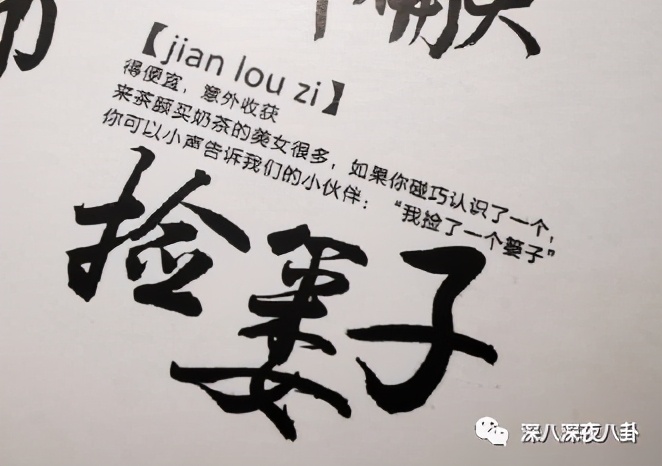 【jian lou zi】
得便宜，意外收获
来茶颜买奶茶的美女很多，如果你碰巧认识了一个，
你可以小声告诉我们的小伙伴：“我捡了一个篓子”
捡篓子
深八深夜八卦